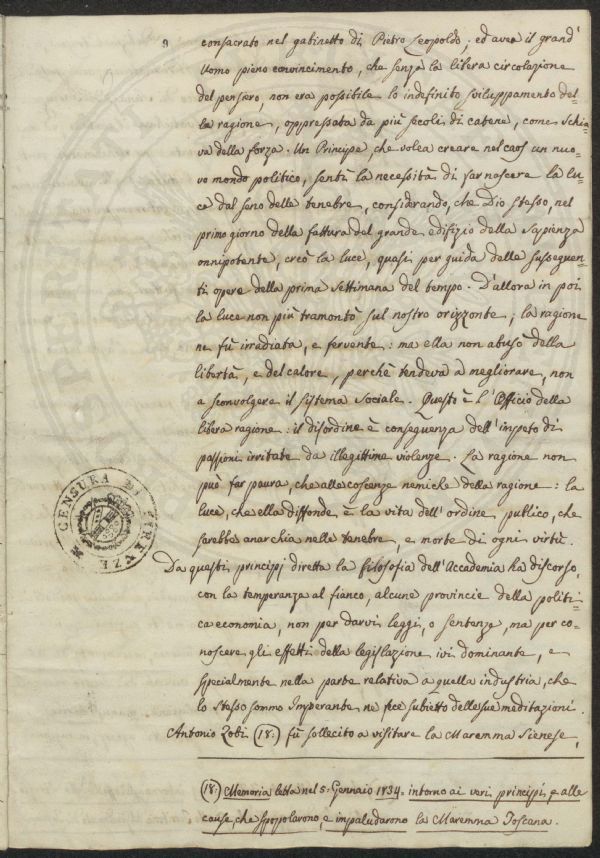 consacrato nel gabinetto di Pietro Leopoldo; ed avea il grand'
Uomo pieno convincimento, che senza la libera circolazione
del pensiero, non era possibile lo indefinito sviluppamento del=
la ragione, oppressata da più secoli di catene, come schia=
va della forza. Un Principe, che volea creare nel caos un nuo=
vo mondo politico, sentì la necessità di far nascere la lu=
ce dal seno delle tenebre, considerando, che Dio stesso, nel
primo giorno della fattura del grande edifizio della Sapienza
onnipotente, creò la luce, quasi per guida delle susseguen=
ti opere della prima settimana del tempo. D'allora in poi
la luce non più tramontò sul nostro orizzonte; la ragione
ne fù irradiata, e fervente: ma ella non abusò della
libertà, e del calore, perchè tendeva a megliorare, non
a sconvolgere il sistema sociale. Questo è l'Officio della
libera ragione: il disordine è conseguenza dell'impeto di
passioni irritate da illegittime violenze. La ragione non
può far paura, che alle coscenze nemiche della ragione: la
luce, che ella diffonde, è la vita dell'ordine publico, che
sarebbe anarchia nelle tenebre, e morte di ogni virtù.
Da questi principj diretta la filosofia dell'Accademia ha discorso,
con la temperanza al fianco, alcune provincie della politi=
ca economia, non per darvi leggi, o sentenze, ma per co=
noscere gli effetti della legislazione ivi dominante, e
specialmente nella parte relativa a quella industria, che
lo stesso sommo Imperante ne fece subietto delle sue meditazioni.
Antonio Zobi (18:) fù sollecito a visitare la Maremma Sienese,
(18:) Memoria letta nel 5: Gennaio 1834. intorno ai veri principj, e alle
cause, che spopolarono, e impaludarono la Maremma Toscana.
CENSURA DI FIRENZE